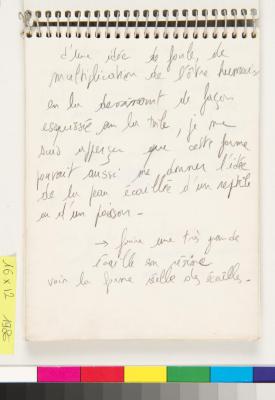 d'une idée de foule, de
multiplication de l'être humain
en le dessinant de façon
esquissée sur la toile, je me
suis aperçu que cette forme
pouvait aussi me donner l'idée
de la peau écaillée d'un reptile
ou d'un poisson -
→ faire une très grande
écaille en résine
voir la forme réelle des écailles -
16 x 12
1986